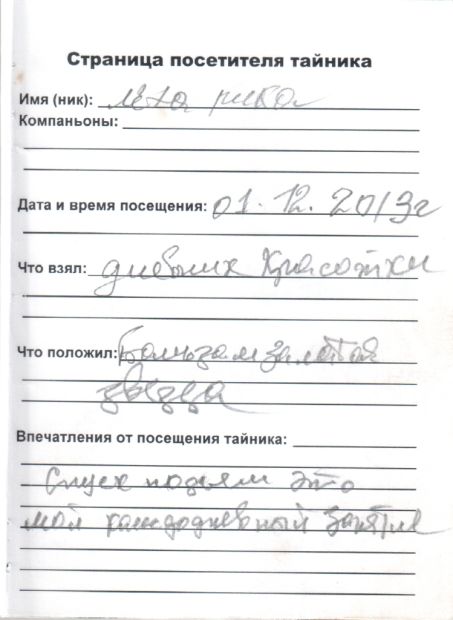 Страница посетителя тайника
Имя (ник): леха рыба
Компаньоны:
Дата и время посещения: 01.12.2013г
Что взял: дневник Красотки
Что положил: Бальзам залотая
звезда
Впечатления от посещения тайника:
Спуск подьем это
мой каждодневный занятие